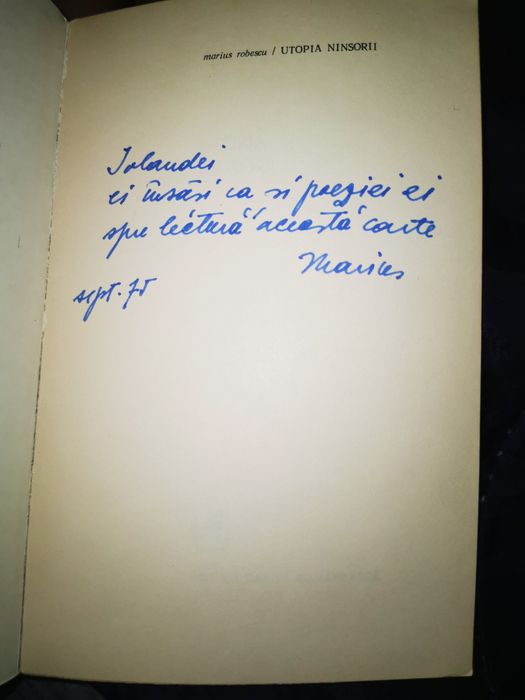 marius robescu / UTOPIA NINSORII
Iolandei
ei însăși ca și poeziei ei
spre lectură această carte
Marius
sept. 75